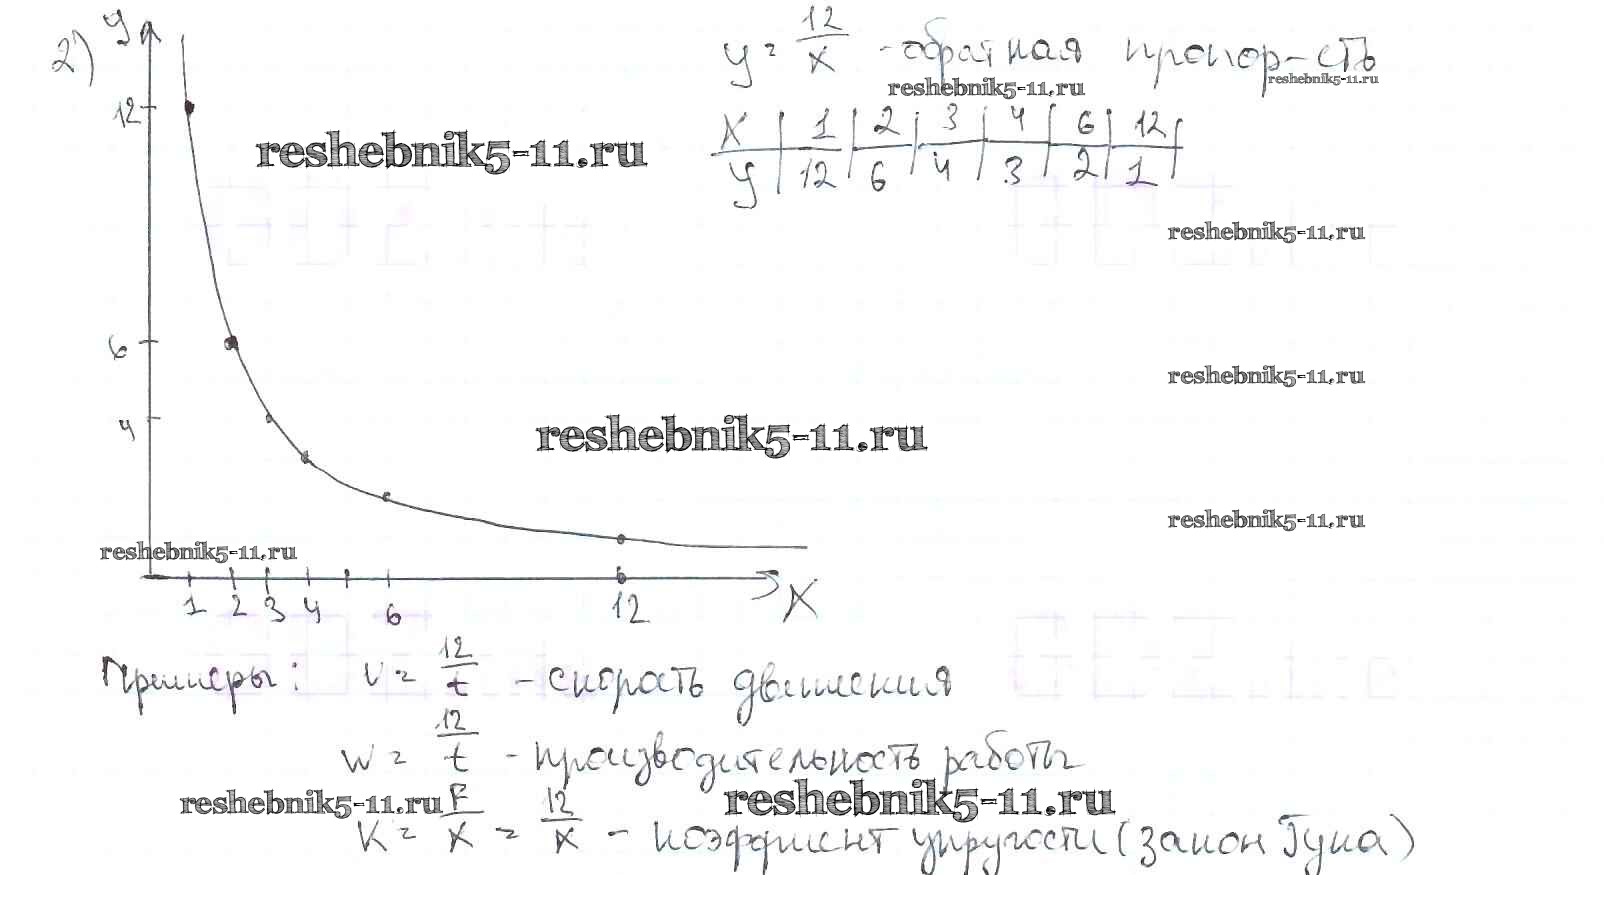 2) y
y = 12/x - обратная пропор-сть
reshebnik5-11.ru reshebnik5-11.ru
x | 1 | 2 | 3 | 4 | 6 | 12 |
y | 12 | 6 | 4 | 3 | 2 | 1 |
12
reshebnik5-11.ru
reshebnik5-11.ru
6
reshebnik5-11.ru
4
reshebnik5-11.ru
reshebnik5-11.ru
reshebnik5-11.ru
1 2 3 4 6 12 X
Примеры: V = 12/t - скорость движения
w = 12/t - производительность работы
reshebnik5-11.ru reshebnik5-11.ru
K = F/x = 12/x - коэффициент упругости (закон Гука)